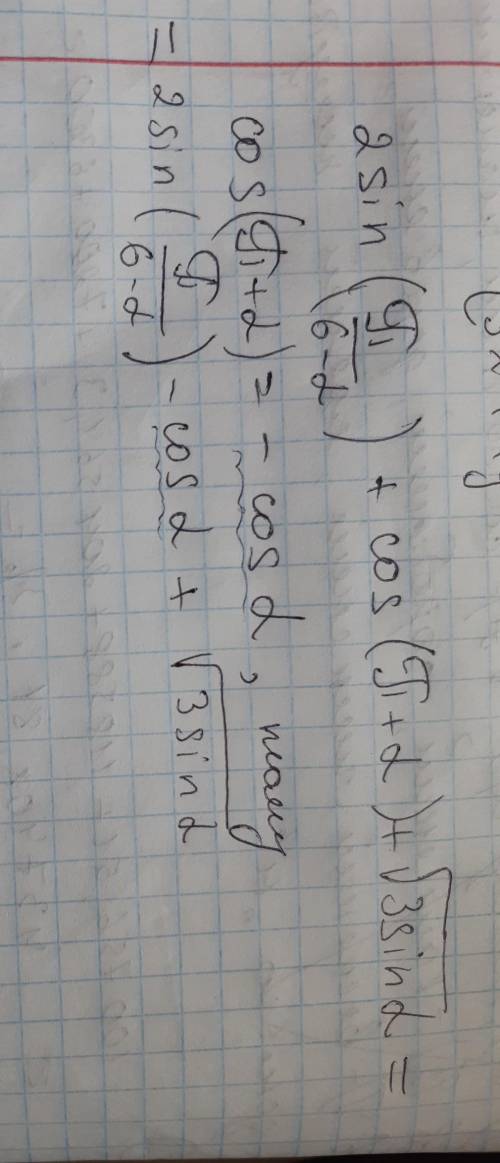 2 sin (π/(6-α)) + cos (π+α) + √(3 sin α) =
cos (π+α) = - cos α, тому
= 2 sin (π/(6-α)) - cos α + √(3 sin α)